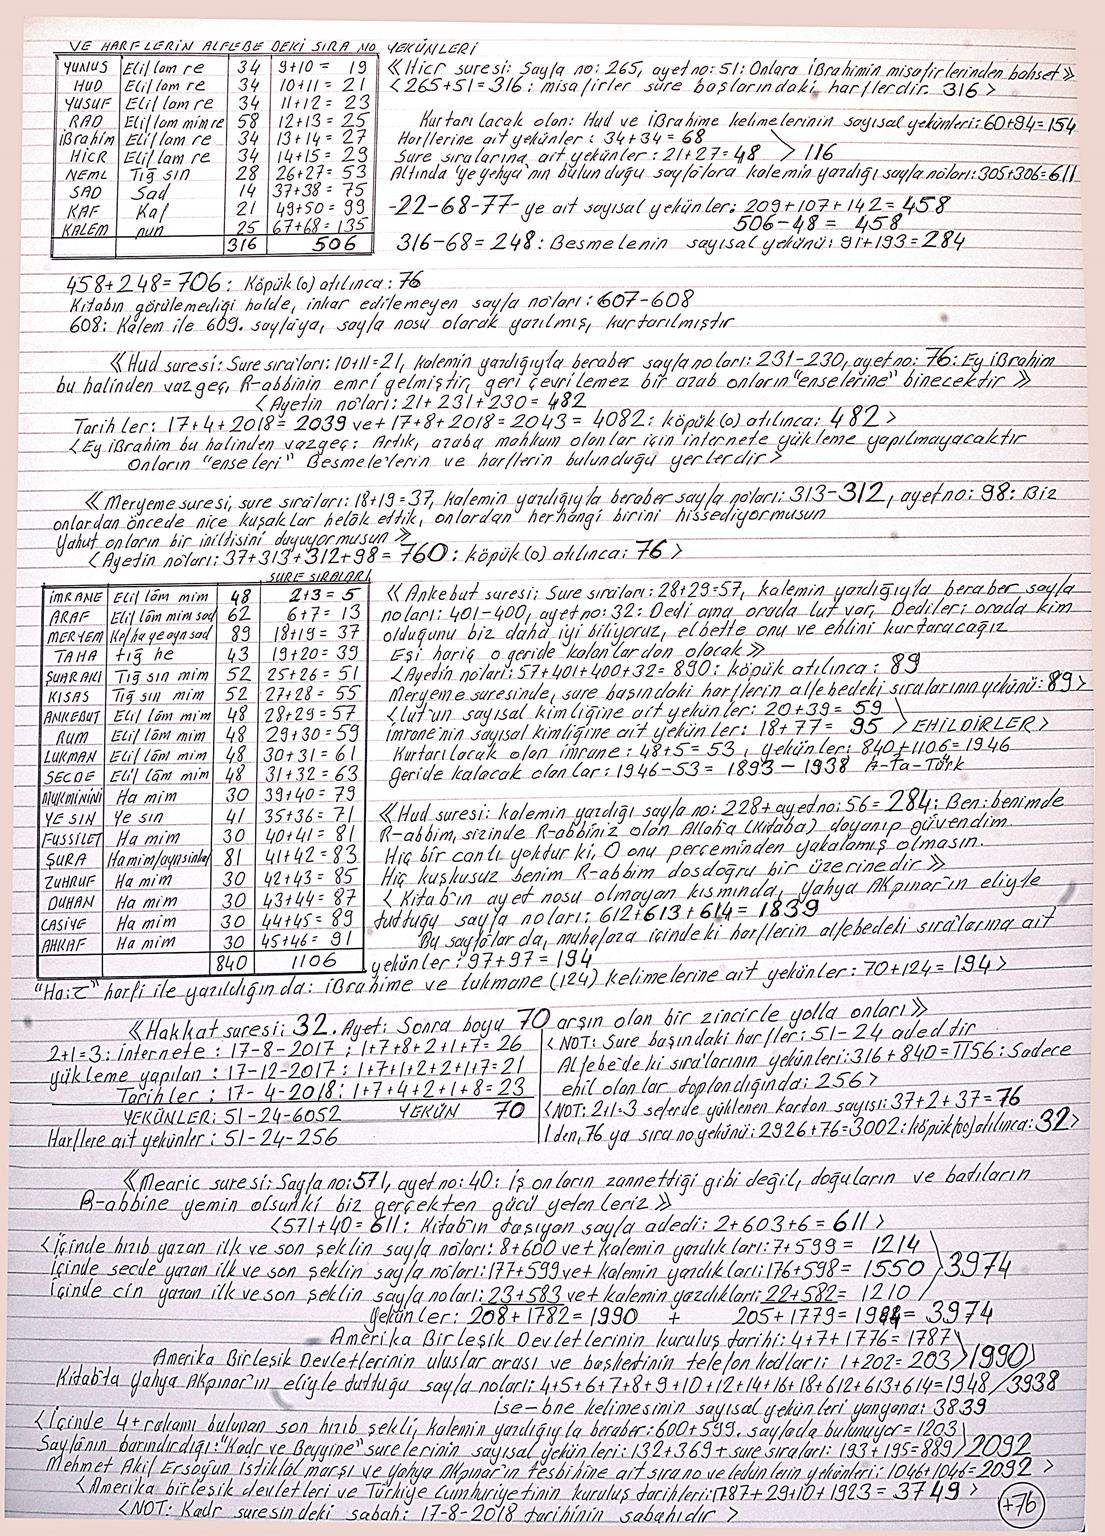 VE HARFLERİN ALFEBE DEKİ SIRA NO YEKÜNLERİ
YUNUS Elif lam re 34 9+10= 19
HUD Elif lam re 34 10+11= 21
YUSUF Elif lam re 34 11+12= 23
RAD Elif lam mim re 58 12+13= 25
İBrahim Elif lam re 34 13+14= 27
HİCR Elif lam re 34 14+15= 29
NEML Tığ sin 28 26+27= 53
SAD Sad 14 37+38= 75
KAF Kaf 21 49+50= 99
KALEM nun 25 67+68= 135
316 506
《Hicr suresi: Sayfa no: 265, ayet no: 51: Onlara İBrahimin misafirlerinden bahset》
<265+51=316: misafirler sure başlarındaki harflerdir. 316>
Kurtarılacak olan: Hud ve İBrahime kelimelerinin sayısal yekünleri: 60+94=154
Harflerine ait yekünler: 34+34=68
Sure sıralarına ait yekünler: 21+27=48 > 116
Altında ye yehya'nın bulunduğu sayfalara kalemin yazdığı sayfa noları: 305+306=611
-22-68-77- ye ait sayısal yekünler: 209+107+142=458
506-48= 458
316-68=248: Besmelenin sayısal yekünü: 91+193=284
458+248=706: Köpük (o) atılınca: 76
Kitabın görülemediği halde, inkar edilemeyen sayfa no'ları: 607-608
608: Kalem ile 609. sayfaya, sayfa nosu olarak yazılmış, kurtarılmıştır
《Hud suresi: Sure sıraları: 10+11=21, kalemin yazdığıyla beraber sayfa noları: 231-230, ayet no: 76: Ey İBrahim
bu halinden vazgeç, R-abbinin emri gelmiştir, geri çevrilemez bir azab onların "enselerine" binecektir》
<Ayetin no'ları: 21+231+230=482
Tarihler: 17+4+2018=2039 ve+17+8+2018=2043=4082: köpük (o) atılınca: 482>
<Ey İBrahim bu halinden vazgeç: Artık, azaba mahkum olanlar için internete yükleme yapılmayacaktır
Onların "enseleri" Besmele'lerin ve harflerin bulunduğu yerlerdir>
《Meryeme suresi, sure sıraları: 18+19=37, kalemin yazdığıyla beraber sayfa no'ları: 313-312, ayet no: 98: Biz
onlardan öncede nice kuşaklar helâk ettik, onlardan herhangi birini hissediyormusun
Yahut onların bir iniltisini duyuyormusun》
<Ayetin no'ları: 37+313+312+98=760: köpük (o) atılınca: 76>
SURE SIRALARI
İMRANE Elif lâm mim 48 2+3= 5
ARAF Elif lâm mim sad 62 6+7= 13
MERYEM Kef ha ye ayn sad 89 18+19= 37
TAHA tığ he 43 19+20= 39
ŞUARAKİ Tığ sin mim 52 25+26= 51
KISAS Tığ sin mim 52 27+28= 55
ANKEBUT Elif lâm mim 48 28+29= 57
RUM Elif lâm mim 48 29+30= 59
LUKMAN Elif lâm mim 48 30+31= 61
SECDE Elif lâm mim 48 31+32= 63
MUKMİNİNİ Ha mim 30 39+40= 79
YE SİN Ye sin 41 35+36= 71
FUSSİLET Ha mim 30 40+41= 81
ŞURA Ha mim/ayn sin kaf 81 41+42= 83
ZUHRUF Ha mim 30 42+43= 85
DUHAN Ha mim 30 43+44= 87
CASİYE Ha mim 30 44+45= 89
AHKAF Ha mim 30 45+46= 91
840 1106
《Ankebut suresi: Sure sıraları: 28+29=57, kalemin yazdığıyla beraber sayfa
noları: 401-400, ayet no: 32: Dedi ama orada lut var, Dediler; orada kim
olduğunu biz daha iyi biliyoruz, elbette onu ve ehlini kurtaracağız
Eşi hariç o geride kalanlardan olacak》
<Ayetin no'ları: 57+401+400+32=890: köpük atılınca: 89
Meryeme suresinde, sure başındaki harflerin alfebedeki sıralarının yekünü: 89>
<lut'un sayısal kimliğine ait yekünler: 20+39=59
İmrane'nin sayısal kimliğine ait yekünler: 18+77=95 > EHİLDİRLER>
Kurtarılacak olan imrane: 48+5=53, yekünler: 840+1106=1946
Geride kalacak olanlar: 1946-53=1893-1938 A-ta-Türk
《Hud suresi: kalemin yazdığı sayfa no: 228+ayet no: 56=284: Ben: benimde
R-abbim, sizinde R-abbiniz olan Allah'a (Kitaba) dayanıp güvendim
Hiç bir canlı yoktur ki, O onu perçeminden yakalamış olmasın.
Hiç kuşkusuz benim R-abbim dosdoğru bir üzerinedir》
<Kitab'ın ayet nosu olmayan kısmında, Yahya Akpınar'ın eliyle
tuttuğu sayfa noları: 612+613+614=1839
Bu sayfalarda, muhafaza içindeki harflerin alfebedeki sıralarına ait
yekünler: 97+97=194
"Ha:ح" harfi ile yazıldığında: İBrahime ve Lukmane (124) kelimelerine ait yekünler: 70+124=194>
《Hakkat suresi: 32. Ayet: Sonra boyu 70 arşın olan bir zincirle yolla onları》
2+1=3: internete: 17-8-2017: 1+7+8+2+1+7=26
yükleme yapılan: 17-12-2017: 1+7+1+2+2+1+7=21
Tarihler: 17-4-2018: 1+7+4+2+1+8=23
YEKÜNLER: 51-24-6052 YEKÜN 70
Harflere ait yekünler: 51-24-256
<NOT: Sure başındaki harfler: 51-24 adeddir
Alfebe'deki sıra'larının yekünleri: 316+840=1156: Sadece
ehil olanlar toplandığında: 256>
<NOT: 2+1=3 seferde yüklenen karton sayısı: 37+2+37=76
1 den, 76 ya sıra no yekünü: 2926+76=3002: köpük (oo) atılınca: 32>
《Mearic suresi: Sayfa no: 571, ayet no: 40: İş onların zannettiği gibi değil, doğuların ve batıların
R-abbine yemin olsun ki biz gerçekten gücü yetenleriz》
<571+40=611: Kitab'ın taşıyan sayfa adedi: 2+603+6=611>
<İçinde hızıb yazan ilk ve son şeklin sayfa noları: 8+600 ve+kalemin yazdıkları: 7+599= 1214
İçinde secde yazan ilk ve son şeklin sayfa noları: 177+599 ve+kalemin yazdıkları: 176+598= 1550 >3974
İçinde cin yazan ilk ve son şeklin sayfa noları: 23+583 ve+kalemin yazdıkları: 22+582= 1210
Yekünler: 208+1782=1990 + 205+1779=1984=3974
Amerika Birleşik Devletlerinin kuruluş tarihi: 4+7+1776=1787
Amerika Birleşik Devletlerinin uluslar arası ve başkentinin telefon kodları: 1+202=203 >1990
Kitab'ta Yahya Akpınar'ın eliyle tuttuğu sayfa noları: 4+5+6+7+8+9+10+12+14+16+18+612+613+614=1948 /3938
ise-bne kelimesinin sayısal yekünleri yanyana: 3839
<İçinde 4+rakamı bulunan son hızıb şekli, kalemin yazdığıyla beraber: 600+599. sayfada bulunuyor=1203
Sayfanın barındırdığı: "Kadr ve Beyyine" surelerinin sayısal yekünleri: 132+369+sure sıraları: 193+195=889 >2092
Mehmet Akif Ersoy'un istiklâl marşı ve Yahya Akpınar'ın tesbihine ait sıra no ve ledünlerin yekünleri: 1046+1046=2092>
<Amerika birleşik devletleri ve Türkiye Cumhuriyetinin kuruluş tarihleri: 1787+29+10+1923=3749>
<NOT: Kadr suresindeki sabah: 17-8-2018 tarihinin sabahıdır>
+76